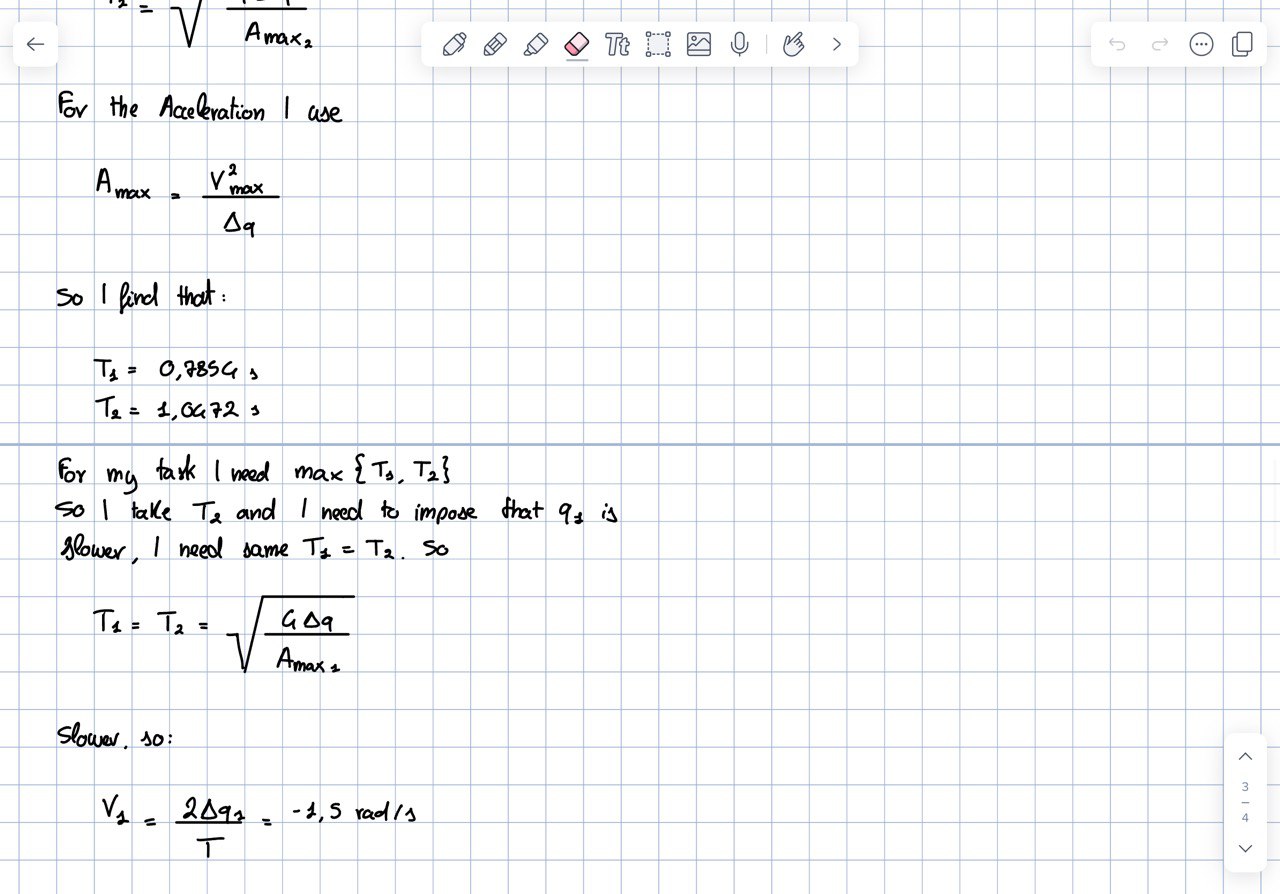 T₂ = √
Amax₂
For the Acceleration I use
Amax = V²max / Δq
So I find that:
T₁ = 0,7854 s
T₂ = 1,0472 s
For my task I need max {T₁, T₂}
So I take T₂ and I need to impose that q₁ is
slower, I need same T₁ = T₂. So
T₁ = T₂ = √(4Δq / Amax₁)
Slower, so:
V₁ = 2Δq₁ / T = -1,5 rad/s
Tt
3
–
4